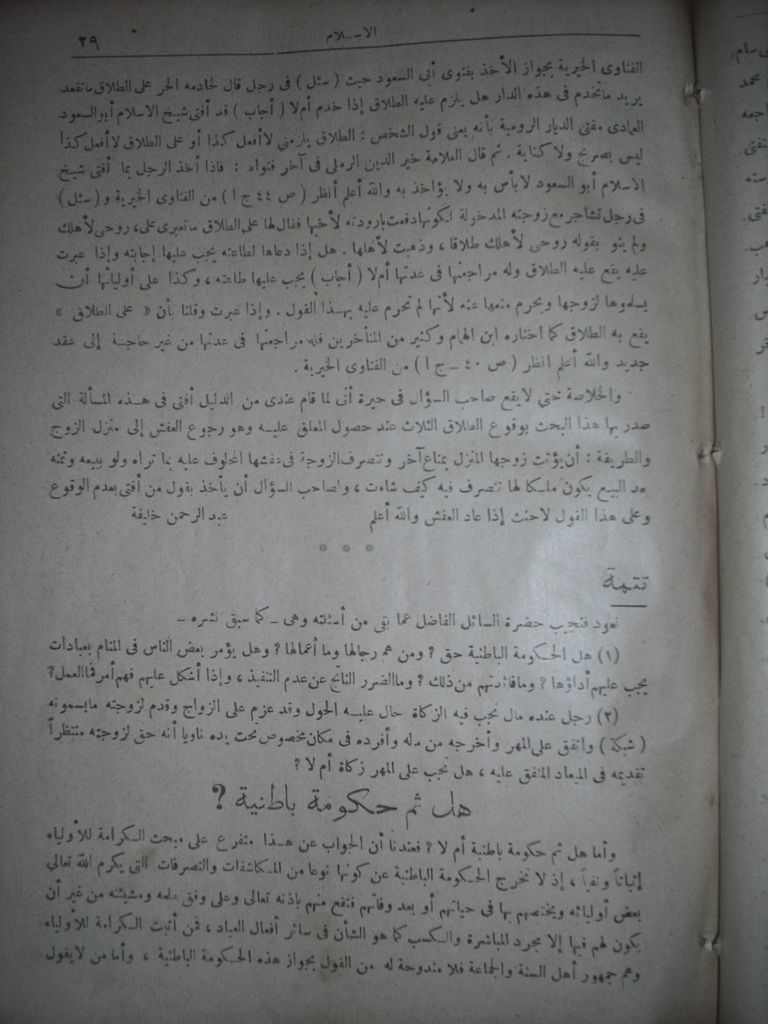 الاسلام
٢٩
الفتاوى الخيرية بجواز الأخذ بفتوى أبى السعود حيث ( سئل ) فى رجل قال لخادمه الحر على الطلاق ماتقعد
يريد ماتخدم فى هذه الدار هل يلزم عليه الطلاق إذا خدم أم لا ( أجاب ) قد أفتى شيخ الاسلام أبو السعود
العمادى مفتى الديار الرومية بأنه يعنى قول الشخص : الطلاق يلزمنى لا أفعل كذا أو على الطلاق لا أفعل كذا
ليس بصريح ولا كناية . ثم قال العلامة خير الدين الرملى فى آخر فتواه : فاذا أخذ الرجل بما أفتى شيخ
الاسلام أبو السعود لا بأس به ولا يؤاخذ به والله أعلم أنظر ( ص ٤٤ ج ١ ) من الفتاوى الخيرية و ( سئل )
فى رجل تشاجر مع زوجته المدخولة لكونها دفعت بارودته لأخيها فقال لها على الطلاق ماتعبرى على، روحى لأهلك
ولم ينو بقوله روحى لأهلك طلاقا ، وذهبت لأهلها . هل إذا دعاها لطاعته يجب عليها إجابته وإذا عبرت
عليه يقع عليه الطلاق وله مراجعتها فى عدتها أم لا ( أجاب ) يجب عليها طاعته ، وكذا على أوليائها أن
يسلموها لزوجها ويحرم منعها عنه لأنها لم تحرم عليه بهذا القول . وإذا عبرت وقلنا بأن « على الطلاق »
يقع به الطلاق كما اختاره ابن الهمام وكثير من المتأخرين فله مراجعتها فى عدتها من غير حاجة إلى عقد
جديد والله أعلم انظر ( ص ٤٠ ـ ج ١ ) من الفتاوى الخيرية .
والخلاصة حتى لايقع صاحب السؤال فى حيرة أنى لما قام عندى من الدليل أفتى فى هذه المسألة التى
صدر بها هذا البحث بوقوع الطلاق الثلاث عند حصول المعلق عليه وهو رجوع العفش إلى منزل الزوج
والطريقة : أن يؤثث زوجها المنزل بمتاع آخر وتتصرف الزوجة فى عفشها المحلوف عليه بما تراه ولو ببيعه وثمنه
بعد البيع يكون ملكا لها تتصرف فيه كيف شاءت ، ولصاحب السؤال أن يأخذ بقول من أفتى بعدم الوقوع
وعلى هذا القول لاحنث إذا عاد العفش والله أعلم عبد الرحمن خليفة
* * *
تتمة
نعود فنجيب حضرة السائل الفاضل عما بقى من أسئلته وهى ـ كما سبق نشره ـ
(١) هل الحكومة الباطنية حق ؟ ومن هم رجالها وما أعمالها ؟ وهل يؤمر بعض الناس فى المنام بعبادات
يجب عليهم أداؤها ؟ وما فائدتهم من ذلك ؟ وما الضرر الناتج عن عدم التنفيذ ، وإذا أشكل عليهم فهم أمر فما العمل؟
(٢) رجل عنده مال تجب فيه الزكاة حال عليه الحول وقد عزم على الزواج وقدم لزوجته مايسمونه
( شبكة ) واتفق على المهر وأخرجه من ماله وأفرده فى مكان مخصوص تحت يده ناويا أنه حق لزوجته منتظراً
تقديمه فى الميعاد المتفق عليه ، هل تجب على المهر زكاة أم لا ؟
هل ثم حكومة باطنية ؟
وأما هل ثم حكومة باطنية أم لا ؟ فعندنا أن الجواب عن هذا متفرع على مبحث الكرامة للأولياء
إثباتاً ونفياً ، إذ لا تخرج الحكومة الباطنية عن كونها نوعا من المكاشفات والتصرفات التى يكرم الله تعالى
بعض أوليائه ويختصهم بها فى حياتهم أو بعد وفاتهم فتقع منهم باذنه تعالى وعلى وفق علمه ومشيئته من غير أن
يكون لهم فيها إلا مجرد المباشرة والكسب كما هو الشأن فى سائر أفعال العباد ، فمن أثبت الكرامة للأولياء
وهم جمهور أهل السنة والجماعة فلا مندوحة له من القول بجواز هذه الحكومة الباطنية ، وأما من لا يقول